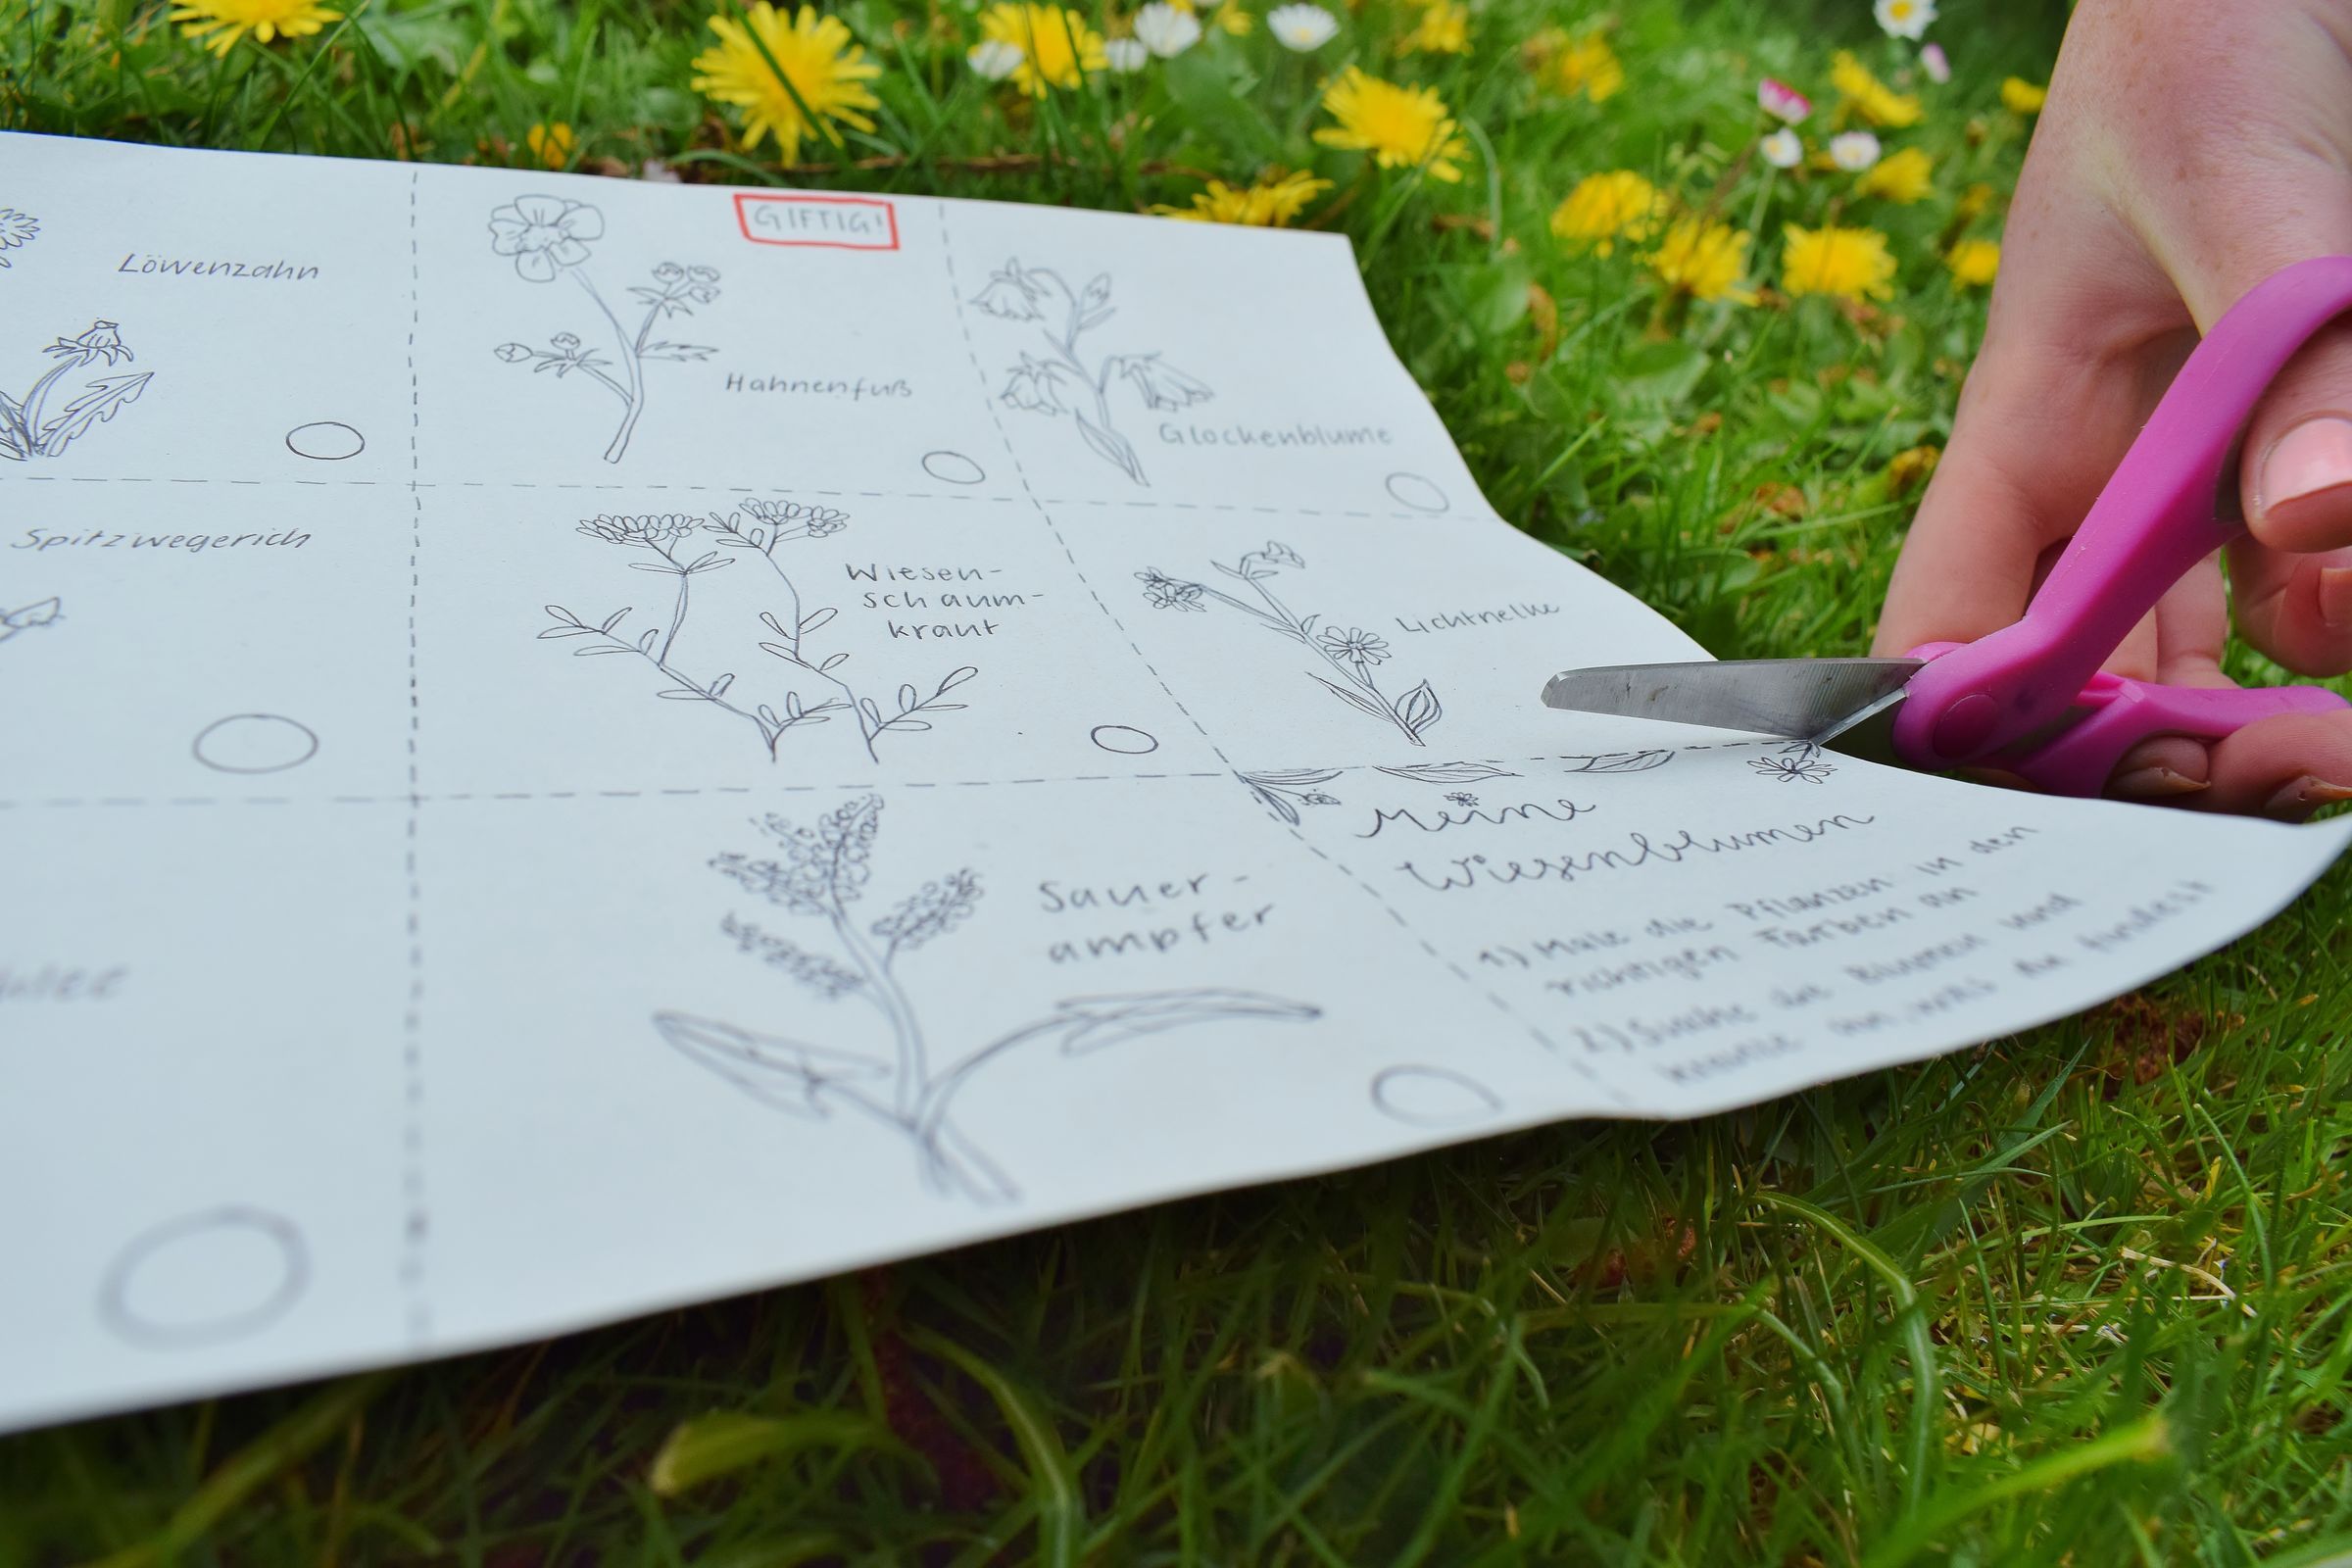 Löwenzahn
GIFTIG!
Hahnenfuß
Glockenblume
Spitzwegerich
Wiesen-
schaum-
kraut
Lichtnelke
Sauer-
ampfer
Meine
Wiesenblumen
1) Male die Pflanzen in den
richtigen Farben an
2) Suche die Blumen und
kreuze an, was du findest